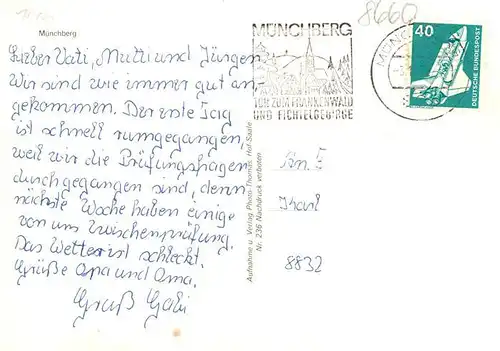 8660
Münchberg
Lieber Vati, Mutti und Jürgen
Wir sind wie immer gut an-
gekommen. Der erste Tag
ist schnell rumgegangen,
weil wir die Prüfungsfragen
durchgegangen sind, denn
nächste Woche haben einige
von uns Zwischenprüfung.
Das Wetter ist schlecht.
Grüße Opa und Oma.
Gruß Gabi
MÜNCHBERG
TOR ZUM FRANKENWALD
UND FICHTELGEBIRGE
MÜNC
40
DEUTSCHE BUNDESPOST
Aufnahme u. Verlag Photo-Thomas Hof-Saale
Nr. 236 Nachdruck verboten
8832